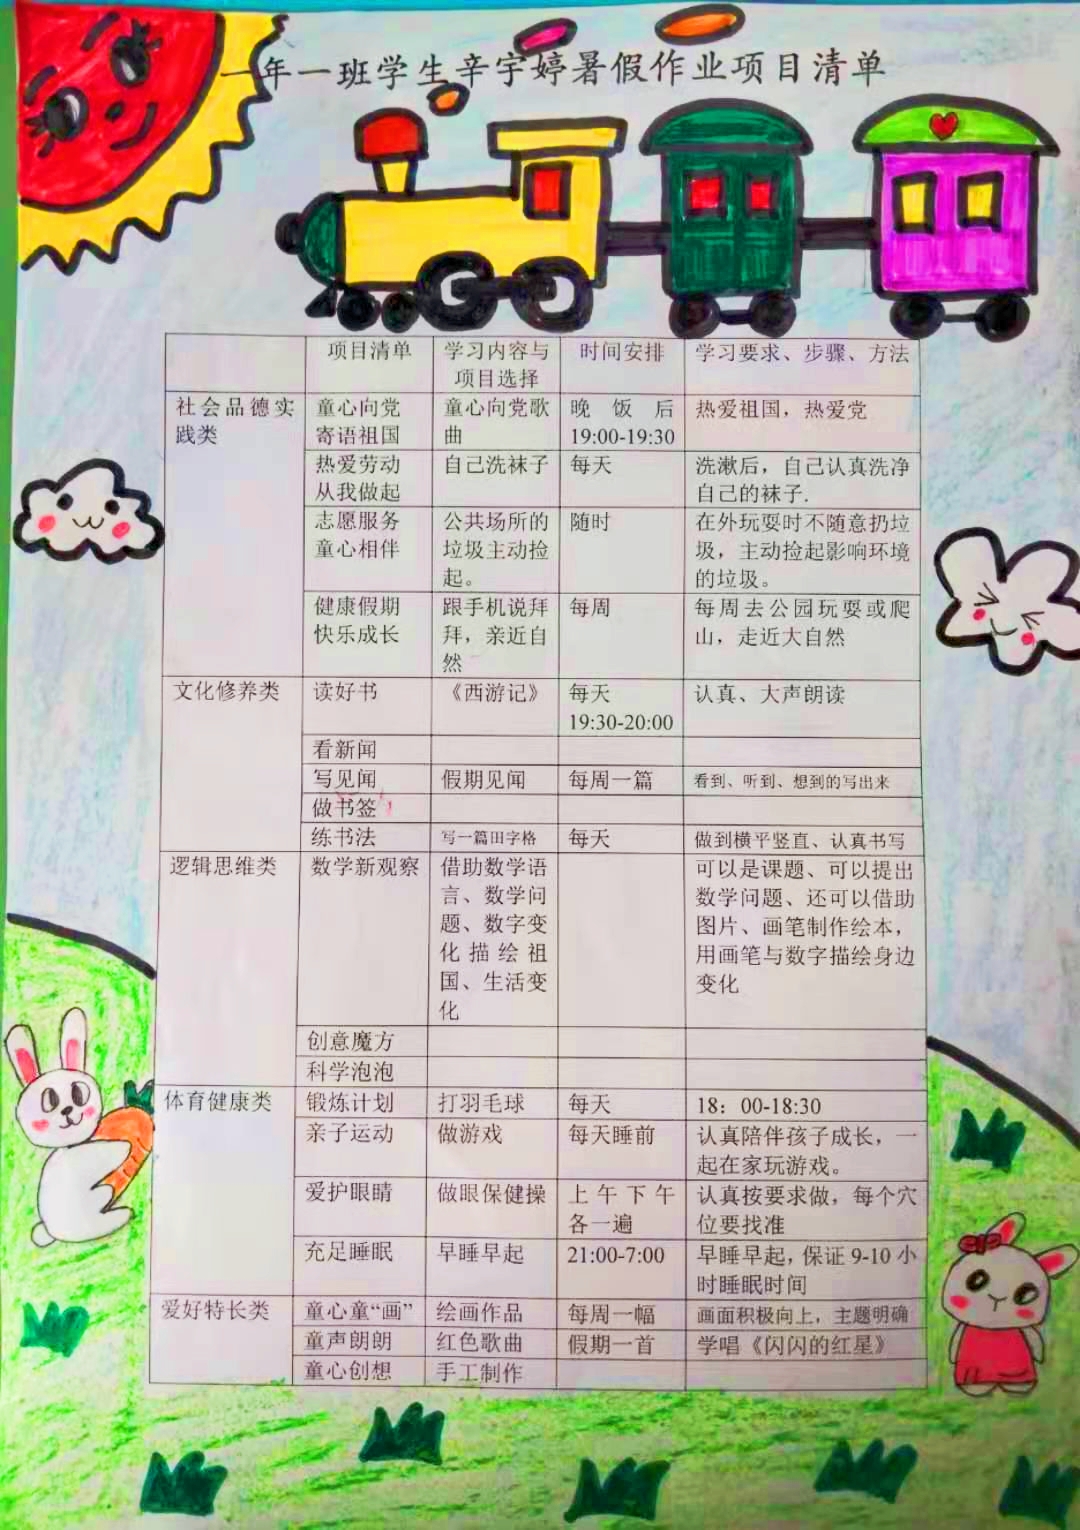 一年一班学生辛宇婷暑假作业项目清单
项目清单 学习内容与项目选择 时间安排 学习要求、步骤、方法
社会品德实践类
童心向党
寄语祖国
童心向党歌
曲
晚饭后
19:00-19:30
热爱祖国，热爱党
热爱劳动
从我做起
自己洗袜子
每天
洗漱后，自己认真洗净
自己的袜子.
志愿服务
童心相伴
公共场所的
垃圾主动捡
起。
随时
在外玩耍时不随意扔垃
圾，主动捡起影响环境
的垃圾。
健康假期
快乐成长
跟手机说拜
拜，亲近自
然
每周
每周去公园玩耍或爬
山，走近大自然
文化修养类
读好书
《西游记》
每天
19:30-20:00
认真、大声朗读
看新闻
写见闻
假期见闻
每周一篇
看到、听到、想到的写出来
做书签
练书法
写一篇田字格
每天
做到横平竖直、认真书写
逻辑思维类
数学新观察
借助数学语
言、数学问
题、数字变
化描绘祖
国、生活变
化
可以是课题、可以提出
数学问题、还可以借助
图片、画笔制作绘本，
用画笔与数字描绘身边
变化
创意魔方
科学泡泡
体育健康类
锻炼计划
打羽毛球
每天
18：00-18:30
亲子运动
做游戏
每天睡前
认真陪伴孩子成长，一
起在家玩游戏。
爱护眼睛
做眼保健操
上午下午
各一遍
认真按要求做，每个穴
位要找准
充足睡眠
早睡早起
21:00-7:00
早睡早起，保证 9-10 小
时睡眠时间
爱好特长类
童心童“画”
绘画作品
每周一幅
画面积极向上，主题明确
童声朗朗
红色歌曲
假期一首
学唱《闪闪的红星》
童心创想
手工制作